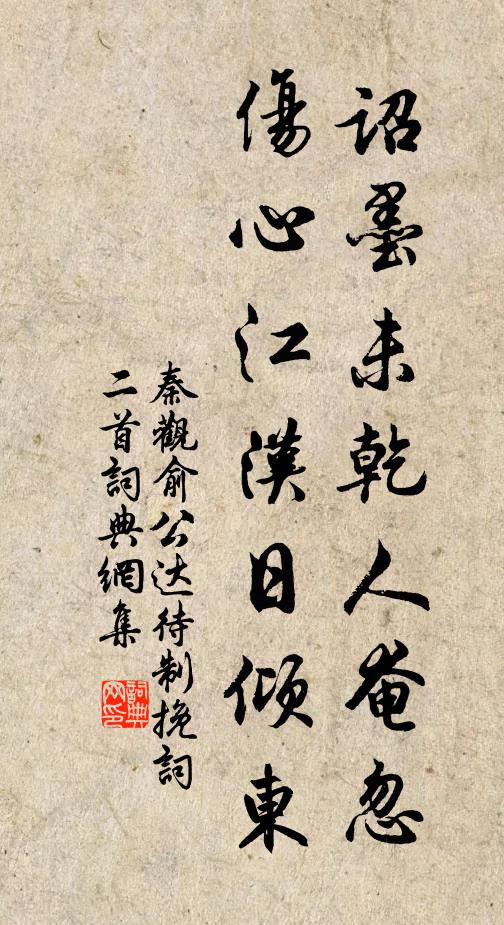 詔墨未乾人奄忽
傷心江漢日傾東
秦觀俞公达待制挽詞
二首詞典網集
詞典网印